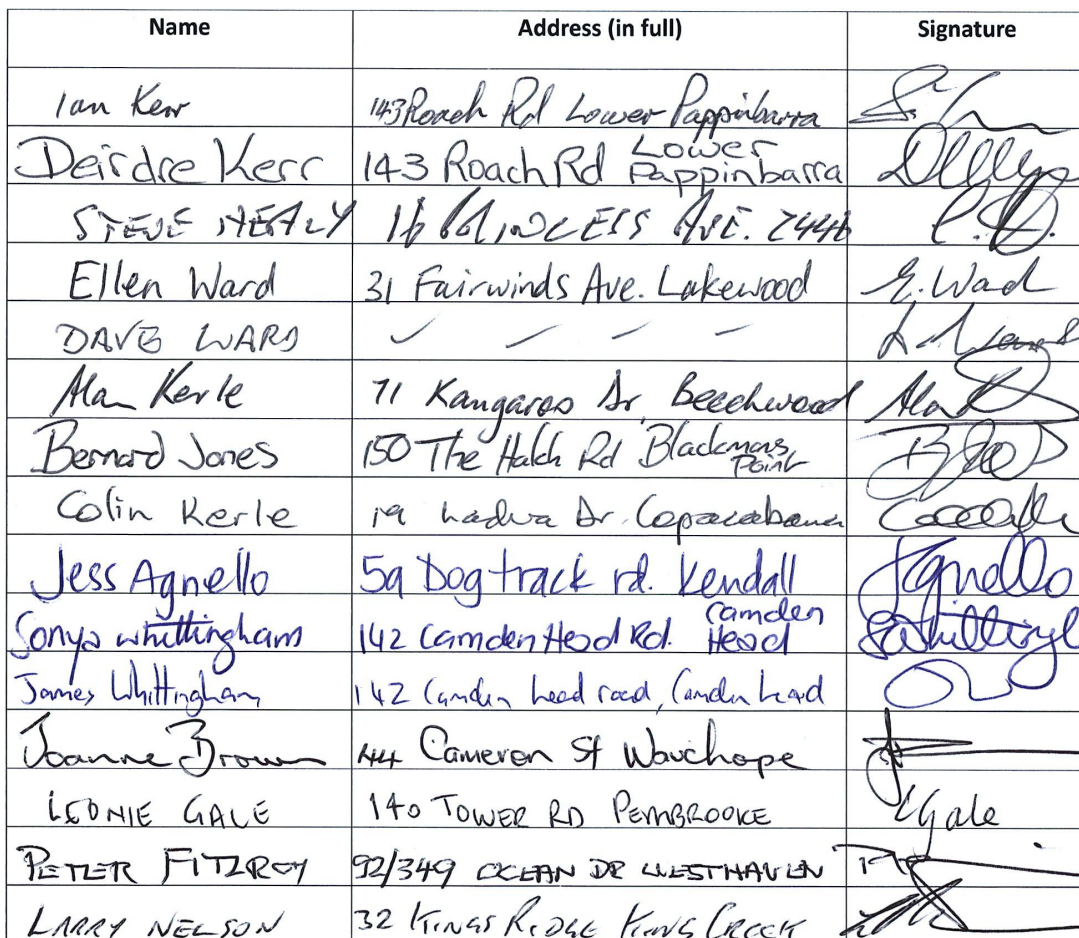 Name Address (in full) Signature
Ian Kerr 143 Roach Rd Lower Pappinbarra
Deirdre Kerr 143 Roach Rd Lower Pappinbarra
STEVE HEALY 16 AVE. 2446
Ellen Ward 31 Fairwinds Ave. Lakewood E. Ward
DAVE WARD
Alan Kerle 71 Kangaroo Dr, Beechwood Alan
Bernard Jones 150 The Hatch Rd Blackmans Point
Colin Kerle 19 Dr. Copacabana
Jess Agnello 59 Dog track rd. Kendall JAgnello
Sonya Whittingham 142 Camden Head Rd. Camden Head
James Whittingham 142 Camden head road, Camden head
Joanne Brown 44 Cameron St Wauchope
LEONIE GALE 140 TOWER RD PEMBROOKE LGale
PETER FITZROY 92/349 OCEAN DR WESTHAVEN
LARRY NELSON 32 KINGS RIDGE KING CREEK